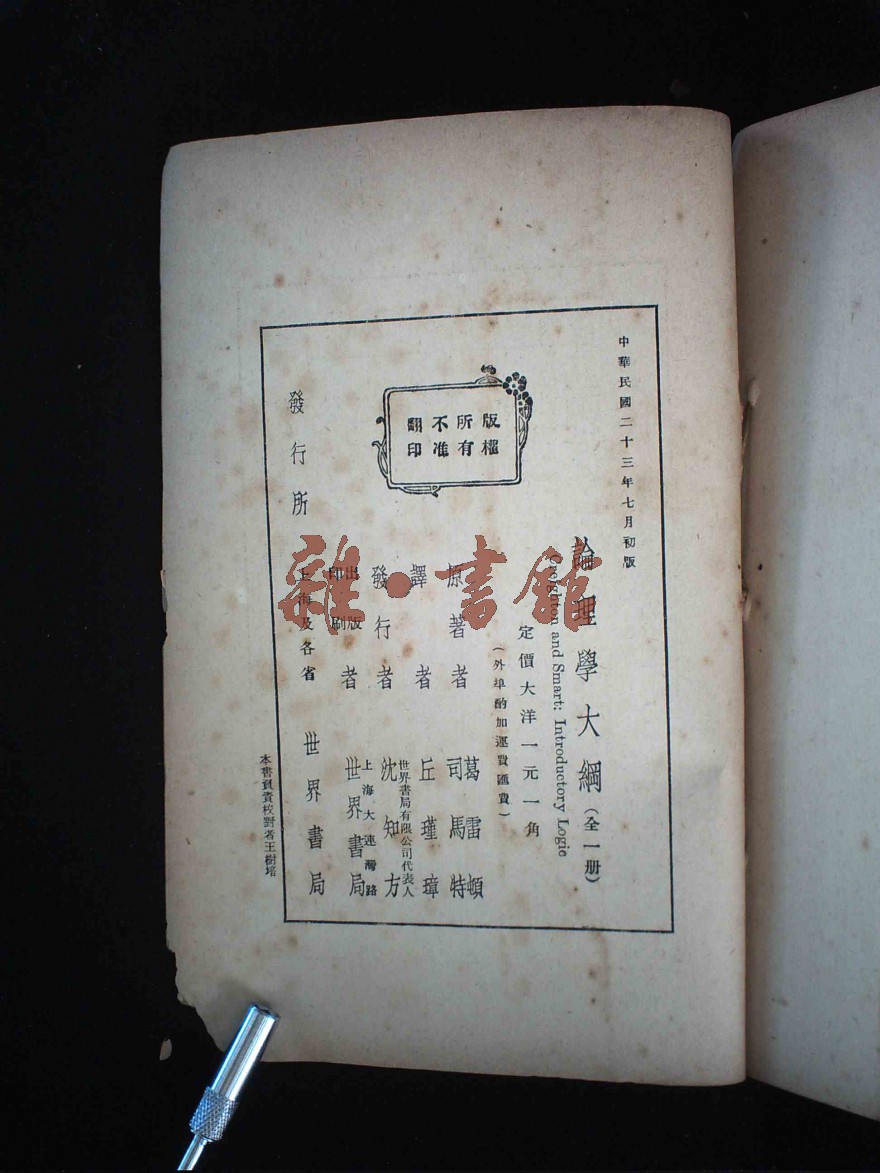 中華民國二十三年七月初版
論理學大綱(全一册)
Creighton and Smart: Introductory Logic
定價大洋一元一角
(外埠酌加運費匯費)
版權
所有
不准
翻印
原著者 葛雷頓 司馬特
譯者 丘瑾璋
發行者 世界書局有限公司代表人 沈知方
出版印刷者 上海大連灣路 世界書局
發行所 上海及各省 世界書局
本書負責校對者王樹培
雜·書館